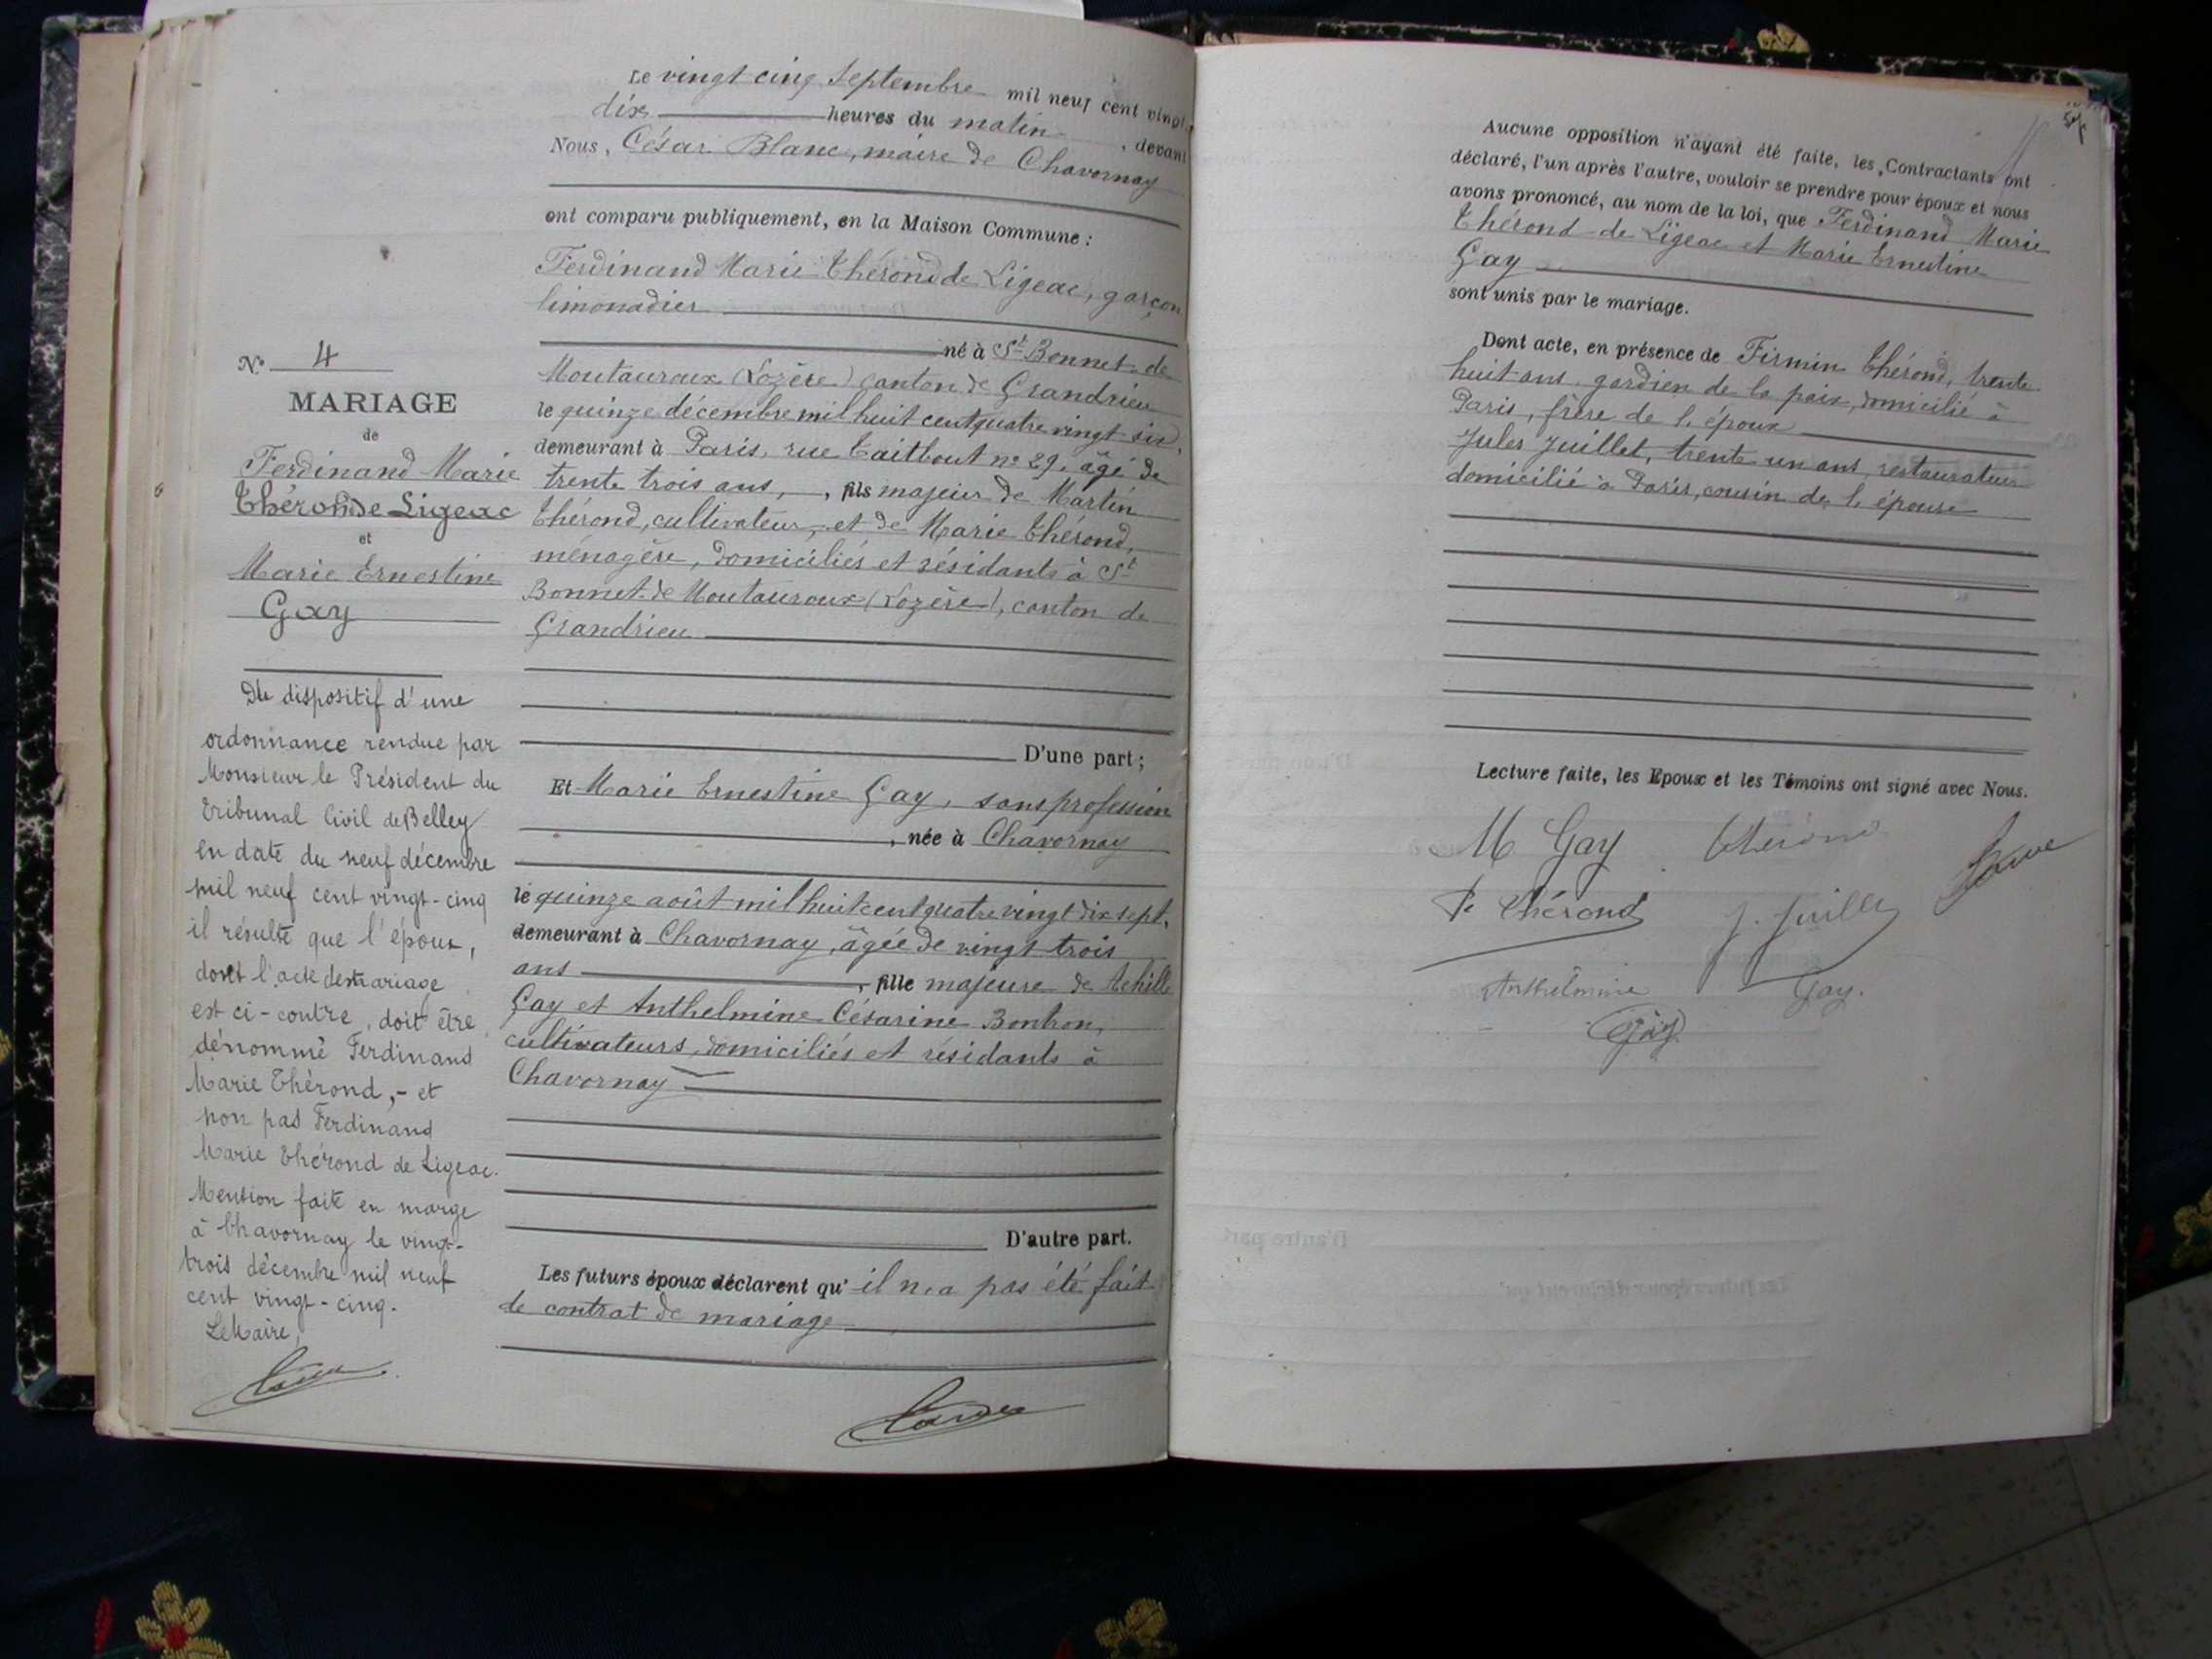 Le vingt cinq Septembre mil neuf cent vingt,
dix heures du matin, devant
Nous, César Blanc, maire de Chavornay
ont comparu publiquement, en la Maison Commune :
Ferdinand Marie Thérond de Ligeac, garçon
limonadier
né à St Bonnet de
Montauroux (Lozère) canton de Grandrieu
le quinze décembre mil huit cent quatre vingt six,
demeurant à Paris, rue Taitbout n° 29, âgé de
trente trois ans, fils majeur de Martin
Thérond, cultivateur, et de Marie Thérond,
ménagère, domiciliés et résidants à St
Bonnet de Montauroux (Lozère), canton de
Grandrieu
D'une part ;
Et Marie Ernestine Gay, sans profession
, née à Chavornay
le quinze août mil huit cent quatre vingt dix sept,
demeurant à Chavornay, âgée de vingt trois
ans, fille majeure de Achille
Gay et Anthelmine Césarine Bonhon,
cultivateurs, domiciliés et résidants à
Chavornay
D'autre part.
Les futurs époux déclarent qu'il n'a pas été fait
de contrat de mariage
N° 4
MARIAGE
de
Ferdinand Marie
Thérond de Ligeac
et
Marie Ernestine
Gay
Du dispositif d'une
ordonnance rendue par
Monsieur le Président du
Tribunal Civil de Belley
en date du neuf décembre
mil neuf cent vingt-cinq
il résulte que l'époux,
dont l'acte de mariage
est ci-contre, doit être
dénommé Ferdinand
Marie Thérond,- et
non pas Ferdinand
Marie Thérond de Ligeac.
Mention faite en marge
à Chavornay le vingt-
trois décembre mil neuf
cent vingt-cinq.
Le Maire,
Aucune opposition n'ayant été faite, les Contractants ont
déclaré, l'un après l'autre, vouloir se prendre pour époux et nous
avons prononcé, au nom de la loi, que Ferdinand Marie
Thérond de Ligeac et Marie Ernestine
Gay
sont unis par le mariage.
Dont acte, en présence de Firmin Thérond, trente
huit ans, gardien de la paix, domicilié à
Paris, frère de l'époux
Jules Juillet, trente un ans, restaurateur
domicilié à Paris, cousin de l'épouse
Lecture faite, les Epoux et les Témoins ont signé avec Nous.
M Gay Thérond
F. Thérond J. Juillet
Anthelmine Gay.
Gay